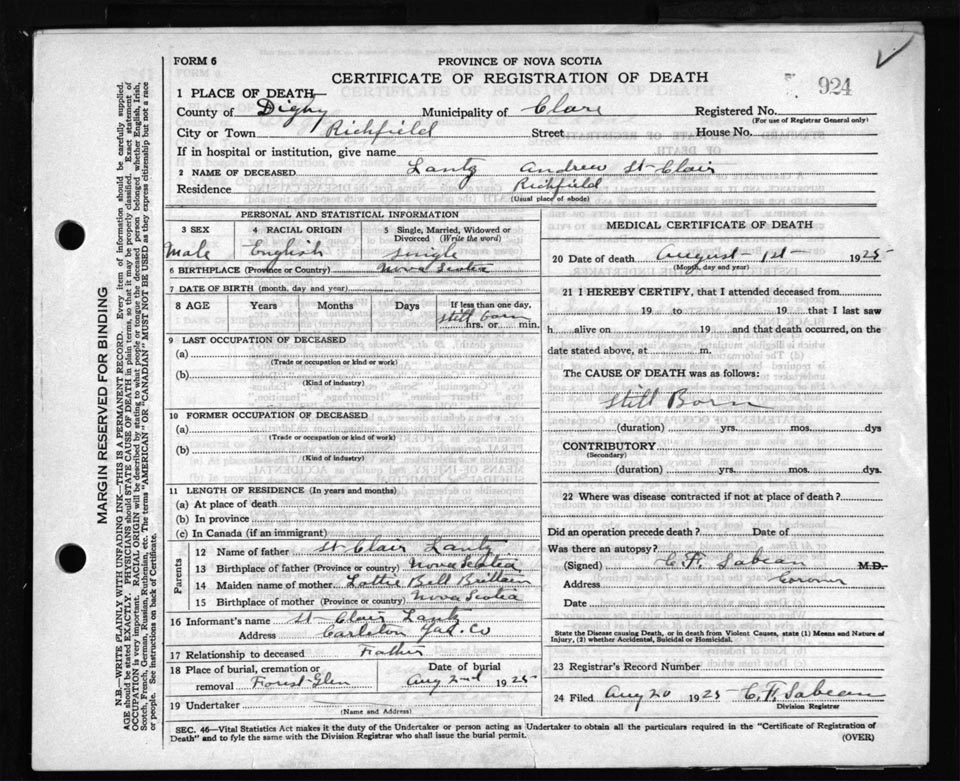 FORM 6
PROVINCE OF NOVA SCOTIA
CERTIFICATE OF REGISTRATION OF DEATH
924
1 PLACE OF DEATH—
County of Digby Municipality of Clare Registered No.
(For use of Registrar General only)
City or Town Richfield Street House No.
If in hospital or institution, give name
2 NAME OF DECEASED Lantz Andrew St-Clair
Residence Richfield
(Usual place of abode)
PERSONAL AND STATISTICAL INFORMATION
3 SEX 4 RACIAL ORIGIN 5 Single, Married, Widowed or Divorced (Write the word)
Male English single
6 BIRTHPLACE (Province or Country) Nova Scotia
7 DATE OF BIRTH (month, day and year)
8 AGE Years Months Days If less than one day,
Still born
hrs. or min.
9 LAST OCCUPATION OF DECEASED
(a)
(Trade or occupation or kind or work)
(b)
(Kind of industry)
10 FORMER OCCUPATION OF DECEASED
(a)
(Trade or occupation or kind of work)
(b)
(Kind of industry)
11 LENGTH OF RESIDENCE (In years and months)
(a) At place of death
(b) In province
(c) In Canada (if an immigrant)
Parents
12 Name of father St Clair Lantz
13 Birthplace of father (Province or country) Nova Scotia
14 Maiden name of mother Lottie Bell Brittain
15 Birthplace of mother (Province or country) Nova Scotia
16 Informant's name St-Clair Lantz
Address Carleton Yar. Co
17 Relationship to deceased Father
18 Place of burial, cremation or Date of burial
removal Forest Glen Aug 2nd 1925
19 Undertaker
(Name and Address)
MEDICAL CERTIFICATE OF DEATH
20 Date of death August 1st 1925
(Month, day and year)
21 I HEREBY CERTIFY, that I attended deceased from
19 to 19 that I last saw
h alive on 19 and that death occurred, on the
date stated above, at m.
The CAUSE OF DEATH was as follows:
Still Born
(duration) yrs. mos. dys
CONTRIBUTORY
(Secondary)
(duration) yrs. mos. dys.
22 Where was disease contracted if not at place of death?
Did an operation precede death? Date of
Was there an autopsy?
(Signed) C. F. Sabean M.D.
Address Coroner
Date
State the Disease causing Death, or in death from Violent Causes, state (1) Means and Nature of
Injury, (2) whether Accidental, Suicidal or Homicidal.
23 Registrar's Record Number
24 Filed Aug 20 1925 C. F. Sabean
Division Registrar
SEC. 46—Vital Statistics Act makes it the duty of the Undertaker or person acting as Undertaker to obtain all the particulars required in the "Certificate of Registration of
Death" and to fyle the same with the Division Registrar who shall issue the burial permit.
(OVER)
MARGIN RESERVED FOR BINDING
N.B.—WRITE PLAINLY WITH UNFADING INK—THIS IS A PERMANENT RECORD. Every item of information should be carefully supplied.
AGE should be stated EXACTLY. PHYSICIANS should STATE CAUSE OF DEATH in plain terms, so that it may be properly classified. Exact statement of
OCCUPATION is very important. RACIAL ORIGIN will be described by stating to what people or tongue the deceased person belonged whether English, Irish,
Scotch, French, German, Russian, Ruthenian, etc. The terms "AMERICAN" OR "CANADIAN" MUST NOT BE USED as they express citizenship but not a race
or people. See instructions on back of Certificate.